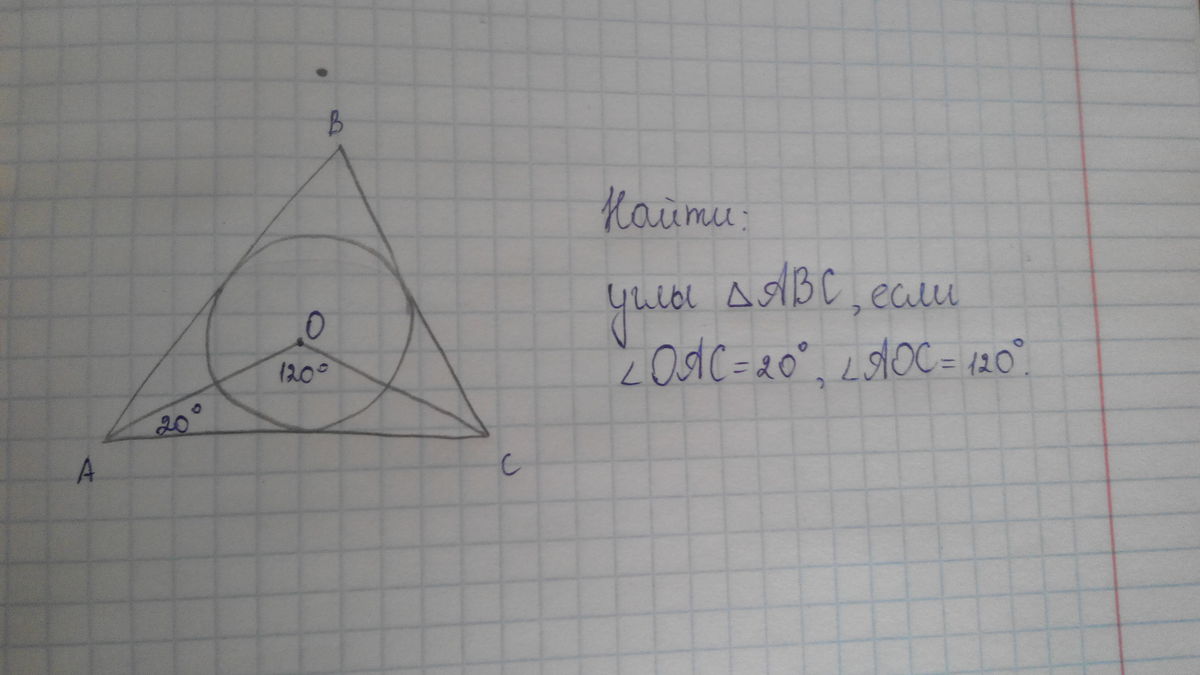 B
O
120°
20°
A
C
Найти:
углы △ABC, если
∠OAC = 20°, ∠AOC = 120°.